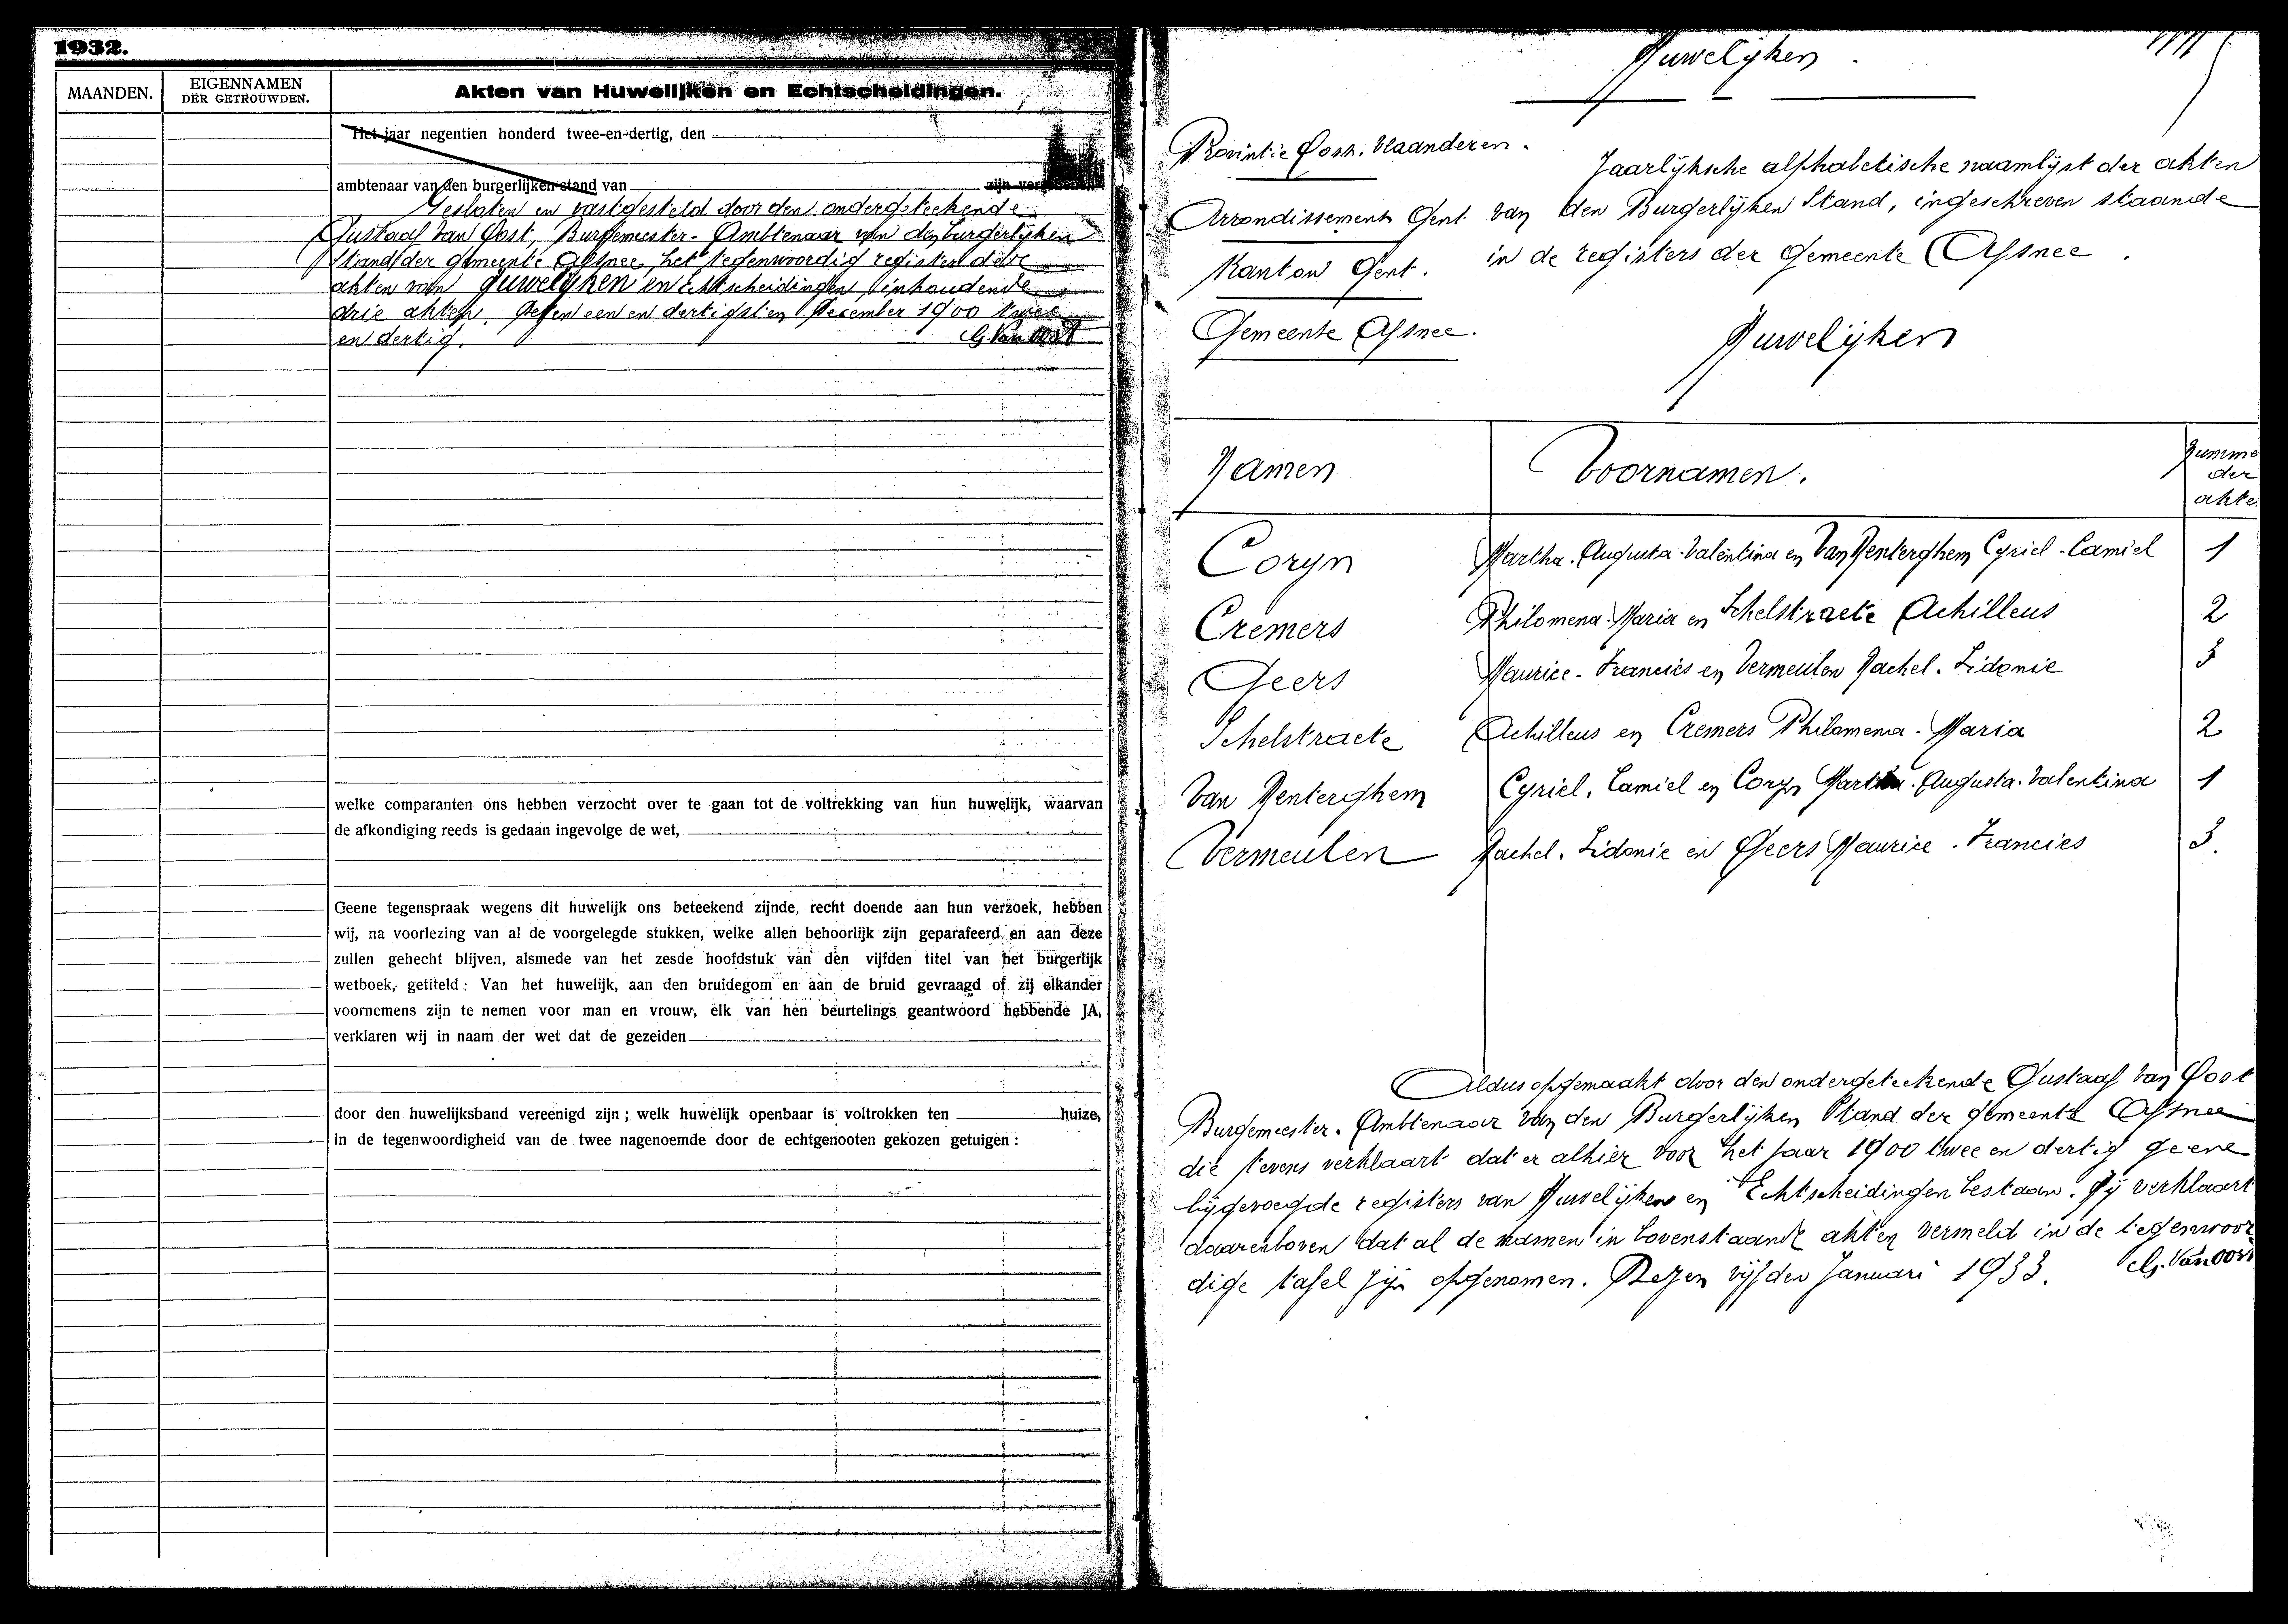 1932.
MAANDEN.
EIGENNAMEN
DER GETROUWDEN.
Akten van Huwelijken en Echtscheidingen.
Het jaar negentien honderd twee-en-dertig, den
ambtenaar van den burgerlijken stand van zijn verschenen
Gesloten en vastgesteld door den ondergeteekende
Gustaaf Van Oost, Burgemeester-Ambtenaar van den burgerlijken
Stand der Gemeente Afsnee, het tegenwoordig register der
akten van Huwelijken en Echtscheidingen, inhoudende
drie akten. Dezen een en dertigsten December 1900 twee
en dertig. G. Van Oost
welke comparanten ons hebben verzocht over te gaan tot de voltrekking van hun huwelijk, waarvan
de afkondiging reeds is gedaan ingevolge de wet,
Geene tegenspraak wegens dit huwelijk ons beteekend zijnde, recht doende aan hun verzoek, hebben
wij, na voorlezing van al de voorgelegde stukken, welke allen behoorlijk zijn geparafeerd en aan deze
zullen gehecht blijven, alsmede van het zesde hoofdstuk van den vijfden titel van het burgerlijk
wetboek, getiteld : Van het huwelijk, aan den bruidegom en aan de bruid gevraagd of zij elkander
voornemens zijn te nemen voor man en vrouw, elk van hen beurtelings geantwoord hebbende JA,
verklaren wij in naam der wet dat de gezeiden
door den huwelijksband vereenigd zijn ; welk huwelijk openbaar is voltrokken ten huize,
in de tegenwoordigheid van de twee nagenoemde door de echtgenooten gekozen getuigen :
Huwelijken.
Provintie Oost. Vlaanderen.
Arrondissement Gent.
Kanton Gent.
Gemeente Afsnee.
Jaarlijksche alphabetische naamlijst der akten
van den Burgerlijken Stand, ingeschreven staande
in de registers der Gemeente Afsnee.
Huwelijken
Namen Voornamen. Numme
der
akte.
Coryn Martha. Augusta. Valentina en Van Renterghem Cyriel. Camiel 1
Cremers Philomena. Maria en Schelstraete Achilleus 2
Geers Maurice. Francies en Vermeulen Rachel. Sidonie 3
Schelstraete Achilleus en Cremers Philomena. Maria 2
Van Renterghem Cyriel. Camiel en Coryn Martha. Augusta. Valentina 1
Vermeulen Rachel. Sidonie en Geers Maurice. Francies 3.
Aldus opgemaakt door den ondergeteekende Gustaaf Van Oost
Burgemeester. Ambtenaar van den Burgerlijken Stand der gemeente Afsnee
die tevens verklaart dat er alhier voor het jaar 1900 twee en dertig geene
bijgevoegde registers van Huwelijken en Echtscheidingen bestaan. Hij verklaart
daarenboven dat al de namen in bovenstaande akten vermeld in de tegenwoor
dige tafel zijn opgenomen. Dezen vijfden Januari 1933. G. Van Oost